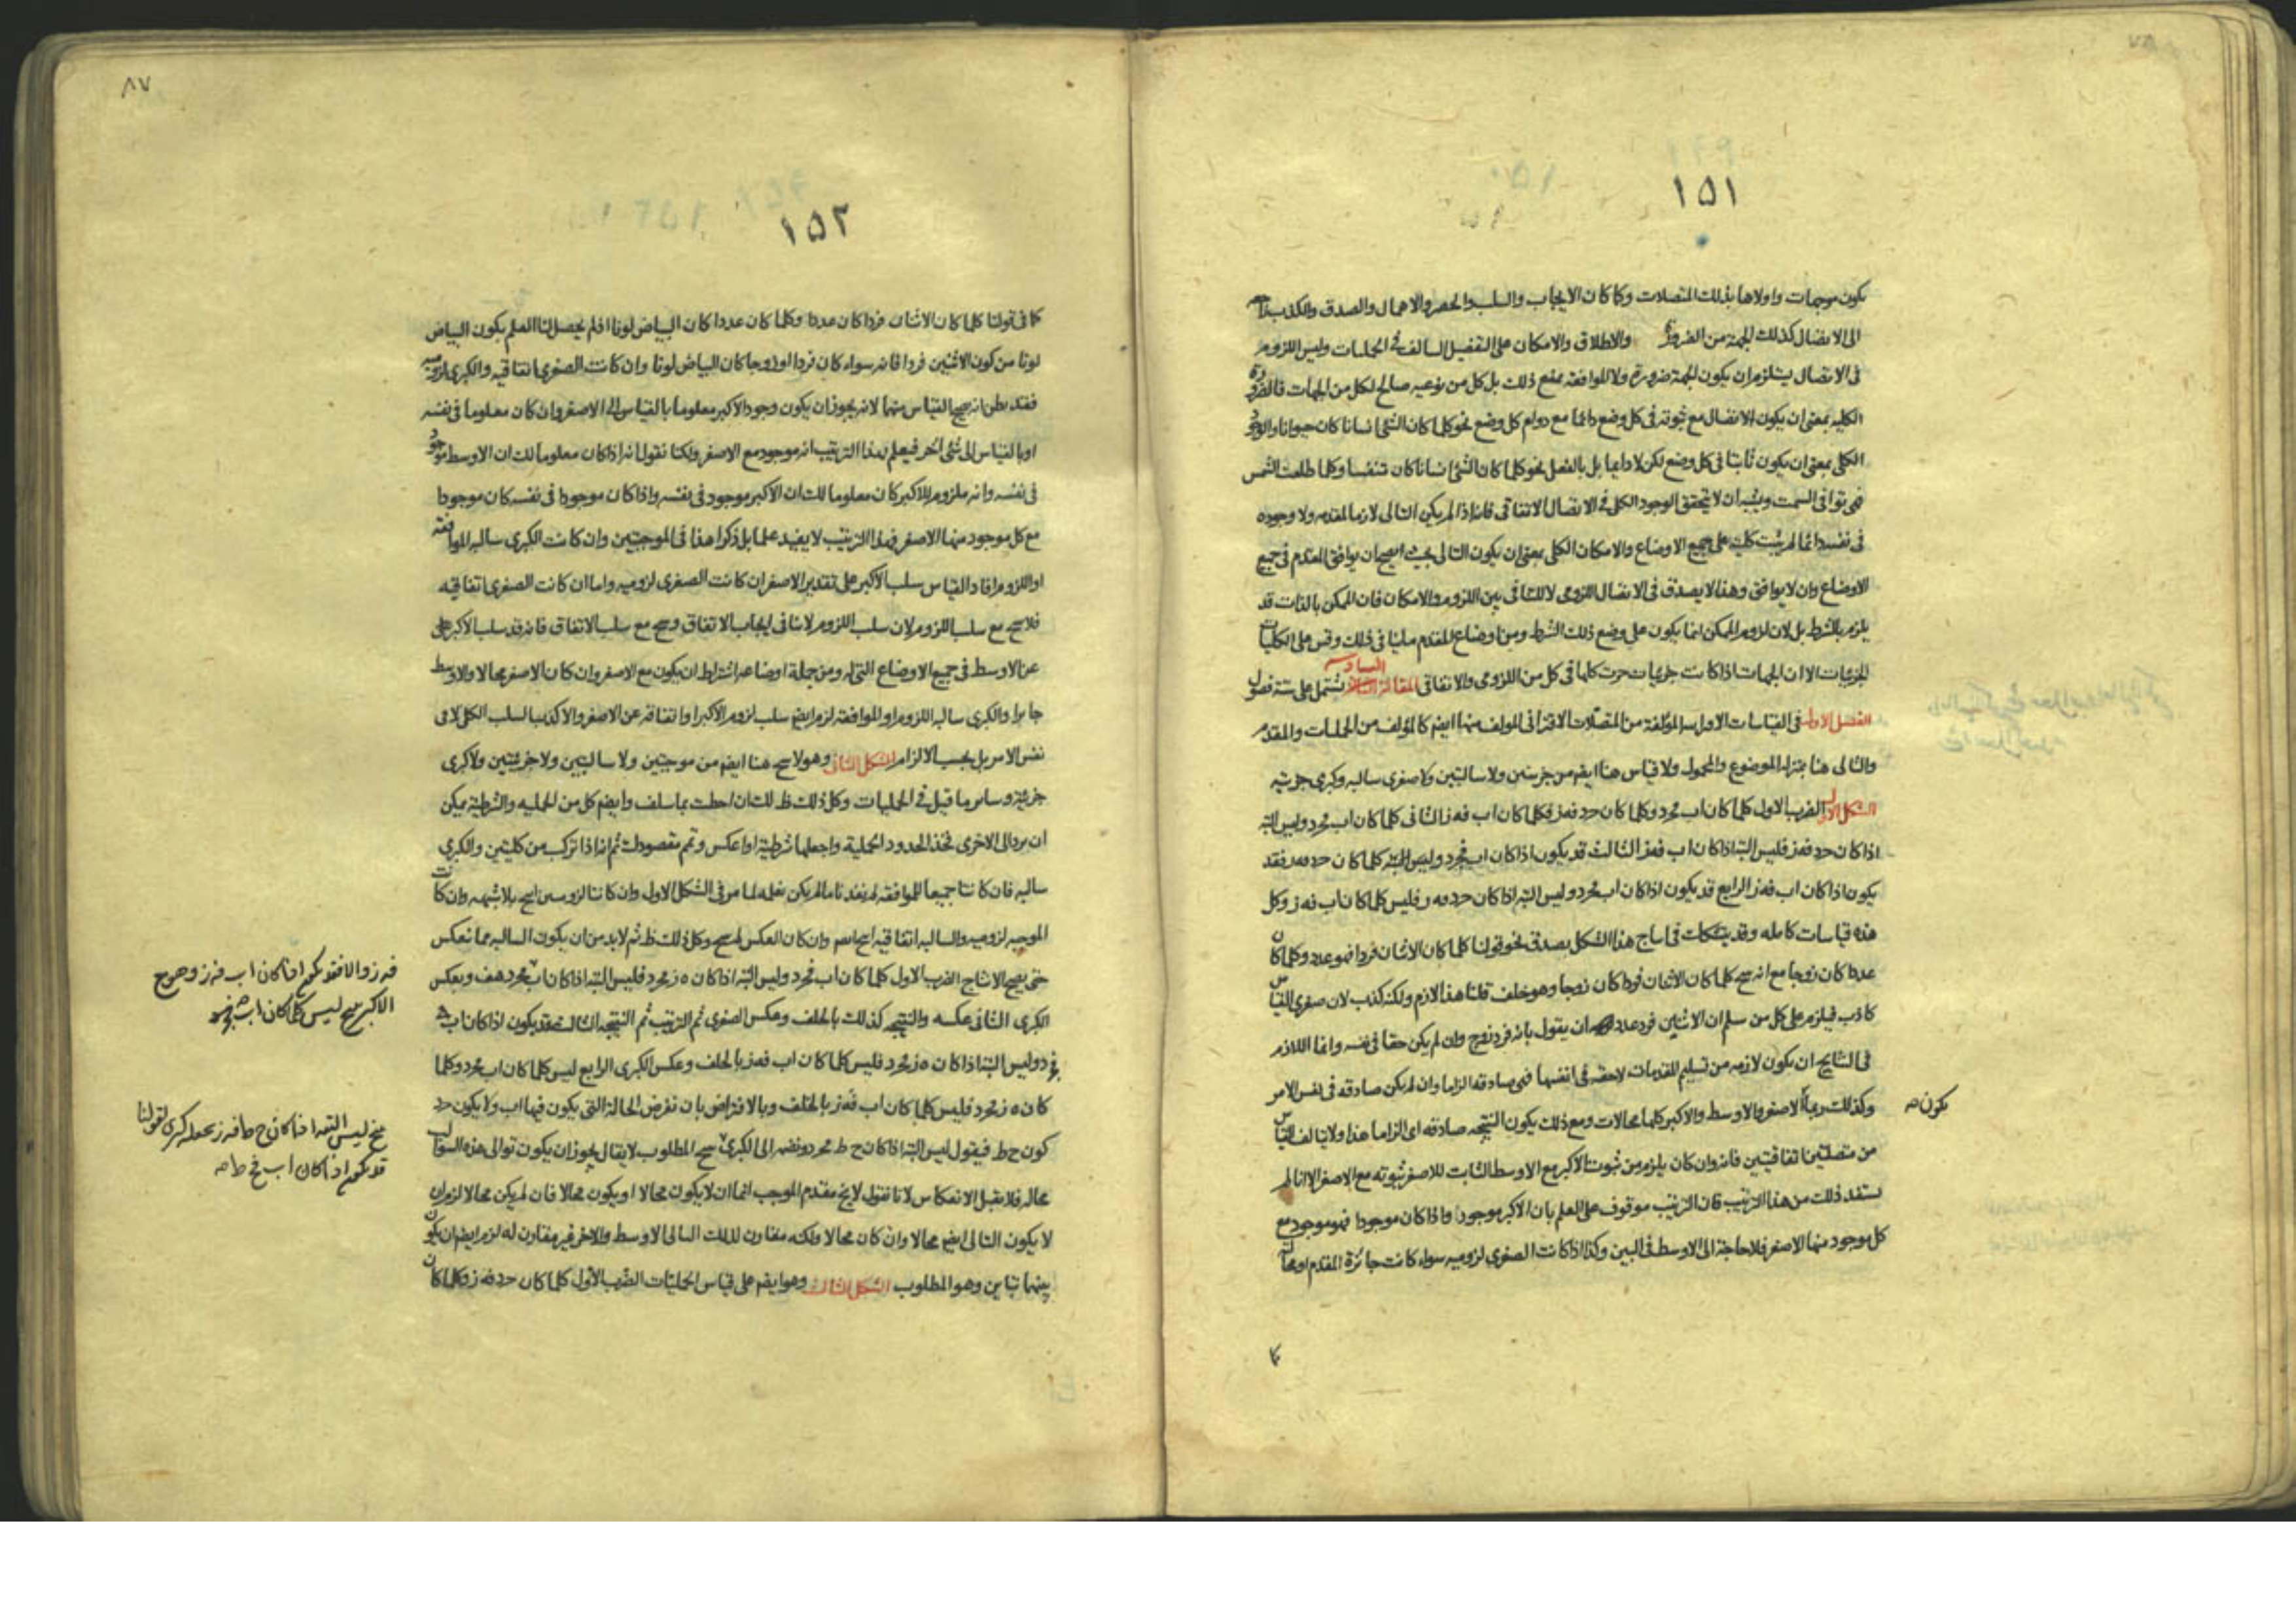 ١٥١
يكون موجهات واولاها بذلك المتصلات وكما كان الايجاب والسلب والحصر والاهمال والصدق والكذب
الى الاتصال كذلك الجهة من الضرورة والاطلاق والامكان على التفصيل السالف في الحمليات وليس اللزوم
في الاتصال يستلزم ان يكون الجهة ضرورة ولا الموافقة بمنع ذلك بل كل من نوعيه صالح لكل من الجهات فالضرورة
الكليه بمعنى ان يكون الاتصال مع ثبوته في كل وضع دائما مع دوام كل وضع نحو كلما كان الشئ انسانا كان حيوانا والوجود
الكلى بمعنى ان يكون ثابتا في كل وضع لكن لا دايما بل بالفعل نحو كلما كان الشئ انسانا كان تنفسا وكلما طلعت الشمس
فهى توافى السمت ويشبه ان لا يتحقق الوجود الكلى في الاتصال الاتفاقى فانه اذا لم يكن التالى لازما للمقدم ولا وجوده
في نفسه دائما لم يثبت كليته على جميع الاوضاع والامكان الكلى بمعنى ان يكون التالى بحيث ايصح ان يوافق المقدم في جميع
الاوضاع وان لا يوافق وهذا لا يصدق في الاتصال اللزومى لا للتنافى بين اللزوم والامكان فان الممكن بالذات قد
يلزم بالشرط بل لان لزوم الممكن انما يكون على وضع ذلك الشرط ومن اوضاع المقدم ما ينافى ذلك وقس على الكليات
الجزئيات الا ان الجهات اذا كانت جزئيات جرت كلها في كل من اللزومى والاتفاقى المقالة السادسه تشتمل على ستة فصول
الفصل الاول في القياسات المؤلفة من المتصلات الاقترانى المولف منها ايضم كالمؤلف من الحمليات والمقدم
والتالى هنا بمنزلة الموضوع والمحمول ولا قياس هنا ايضم من جزئيتين ولا سالبتين ولا صغرى سالبه وكبرى جزئيه
الشكل الاول الضرب الاول كلما كان اب فجد وكلما كان جد فهز فكلما كان اب فهز الثانى كلما كان اب فجد وليس البته
اذا كان جد فهز فليس البته اذا كان اب فهز الثالث قد يكون اذا كان اب فجد وكلما كان جد فهز فقد
يكون اذا كان اب فهز الرابع قد يكون اذا كان اب فجد وليس البته اذا كان جد فهز فليس كلما كان اب فهز وكل
هذه قياسات كامله وقد يتشكك في انتاج هذا الشكل بصدق نحو قولنا كلما كان الاثنان فردا فهو عدد وكلما كان
عددا كان زوجا مع انه كلما كان الاثنان فردا كان زوجا وهو خلف قلنا هذا لازم ولكنه كذب لان صغرى القياس
كاذب فيلزم على كل من سلم ان الاثنين فرد عدد ان يقول بانه فرد زوج وان لم يكن حقا في نفسه وانما اللازم
في النتايج ان يكون لازمه من تسليم المقدمات لاحقه في انفسها فهى صادقه الزاما وان لم يكن صادقه في نفس الامر
وكذلك ربما الاصغر والاوسط والاكبر كلها محالات ومع ذلك يكون النتيجه صادقه اى الزاما هذا ولا يتالف القياس
يكون صح
من متصلتين اتفاقيتين فانه وان كان يلزم من ثبوت الاكبر مع الاوسط الثابت للاصغر ثبوته مع الاصغر الا انا لم
نستفد ذلك من هذا الترتيب فان الترتيب موقوف على العلم بان الاكبر موجود واذا كان موجودا فهو موجود مع
كل موجود منها الاصغر فلا حاجة الى الاوسط في البين وكذا اذا كانت الصغرى لزوميه سواء كانت جائزة المقدم او محالة
كما
٨٧
١٥٢
كما في قولنا كلما كان الاثنان فردا كان عددا وكلما كان عددا كان البياض لونا اذ لم يحصل لنا العلم بكون البياض
لونا من كون الاثنين فردا فانه سواء كان فردا او زوجا كان البياض لونا وان كانت الصغرى اتفاقيه والكبرى لزوميه
فقد يظن انه القياس منهما لانه يجوز ان يكون وجود الاكبر معلوما بالقياس الى الاصغر وان كان معلوما في نفسه
او بالقياس الى شئ اخر فيعلم بهذا الترتيب انه موجود مع الاصغر ولكنا نقول انه اذا كان معلوما لك ان الاوسط موجود
في نفسه وانه ملزوم للاكبر كان معلوما لك ان الاكبر موجود في نفسه واذا كان موجودا في نفسه كان موجودا
مع كل موجود منها الاصغر فهذا الترتيب لا يفيد علما بل ذكرا هذا في الموجبتين وان كانت الكبرى سالبه الموافقه
او اللزوم افاد القياس سلب الاكبر على تقدير الاصغر ان كانت الصغرى لزوميه واما ان كانت الصغرى اتفاقيه
فلا مع سلب اللزوم لان سلب اللزوم لا ينافى ايجاب الاتفاق و مع سلب الاتفاق فانه قد سلب الاكبر
عن الاوسط في جميع الاوضاع التى له ومن جملة اوضاعه اشتراط ان يكون مع الاصغر وان كان الاصغر محالا والاوسط
جايزا والكبرى سالبه اللزوم او الموافقه لزم ايضم سلب لزوم الاكبر او اتفاقه عن الاصغر والا كذب السلب الكلى لا في
نفس الامر بل بحسب الالزام الشكل الثانى وهو لا هنا ايضم من موجبتين ولا سالبتين ولا جزئيتين ولا كبرى
جزئية وساير ما قيل في الحمليات وكل ذلك ظ لك ان احطت بما سلف وايضم كل من الحمليه والشرطيه يمكن
ان يرد الى الاخرى فخذ الحدود الحملية واجعلها شرطية او اعكس وتم مقصودك ثم انه اذا تركب من كليتين والكبرى
سالبه فان كانتا جميعا للموافقه لم يفدنا ما لم يكن نعلمه لما مر في الشكل الاول وان كانتا لزوميتين بلا شبهه وان كانت
الموجبه لزوميه والسالبه اتفاقيه وان كان العكس لم وكل ذلك ظ ثم لابد من ان يكون السالبه مما تنعكس
حتى يصح الانتاج الضرب الاول كلما كان اب فجد وليس البته اذا كان ه ز فجد فليس البته اذا كان اب فهز هف وبعكس
الكبرى الثانى عكسه والنتيجه كذلك بالخلف وعكس الصغرى ثم الترتيب ثم النتيجه الثالث قد يكون اذا كان اب
فجد وليس البته اذا كان ه ز فجد فليس كلما كان اب فهز بالخلف وعكس الكبرى الرابع ليس كلما كان اب فجد وكلما
كان ه ز فجد فليس كلما كان اب فهز بالخلف وبالافتراض بان نفرض الحالة التى يكون فيها اب ولا يكون جد
كون ح ط فيقول ليس البته اذا كان ح ط فجد ونضم الى الكبرى المطلوب لا يقال يجوز ان يكون توالى هذه السوالب
محاله فلا يقبل الانعكاس لانا نقول لا يخ مقدم الموجب اما ان لا يكون محالا او يكون محالا فان لم يكن محالا لزم ان
لا يكون التالى ايضم محالا وان كان محالا ولكنه مقارن لذلك التالى الاوسط والاخر غير مقارن له لزم ايضم ان يكون
بينهما تباين وهو المطلوب الشكل الثالث وهو ايضم على قياس الحمليات الضرب الاول كلما كان جد فهز وكلما كان
فهز والا فقد يكون اذا كان اب فهز وهو مع
الاكبر ليس كلما كان اب فجد
ليس البته اذا كان ح ط فهز نجعله كبرى لقولنا
قد يكون اذا كان اب فح ط صح